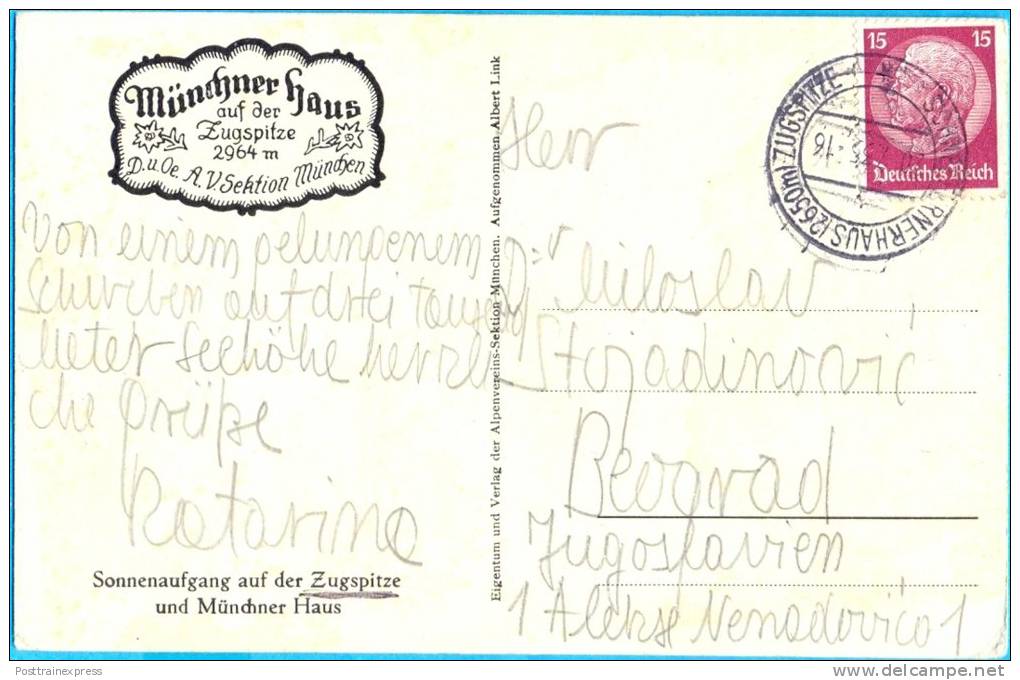 Münchner Haus
auf der
Zugspitze
2964 m
D. u. Oe. A. V. Sektion München
Von einem gelungenem
Schweben auf drei tausend
Meter Seehöhe herzli
che Grüße
Katarina
Sonnenaufgang auf der Zugspitze
und Münchner Haus
Eigentum und Verlag der Alpenvereins-Sektion München. Aufgenommen Albert Link
15 15
Deutsches Reich
ZUGSPITZE
(2650m)
16
Herr
Dr Miloslav
Stojadinović
Beograd
Jugoslavien
1 Alekse Nenadovića 1
Posttrainexpress
delcampe.net